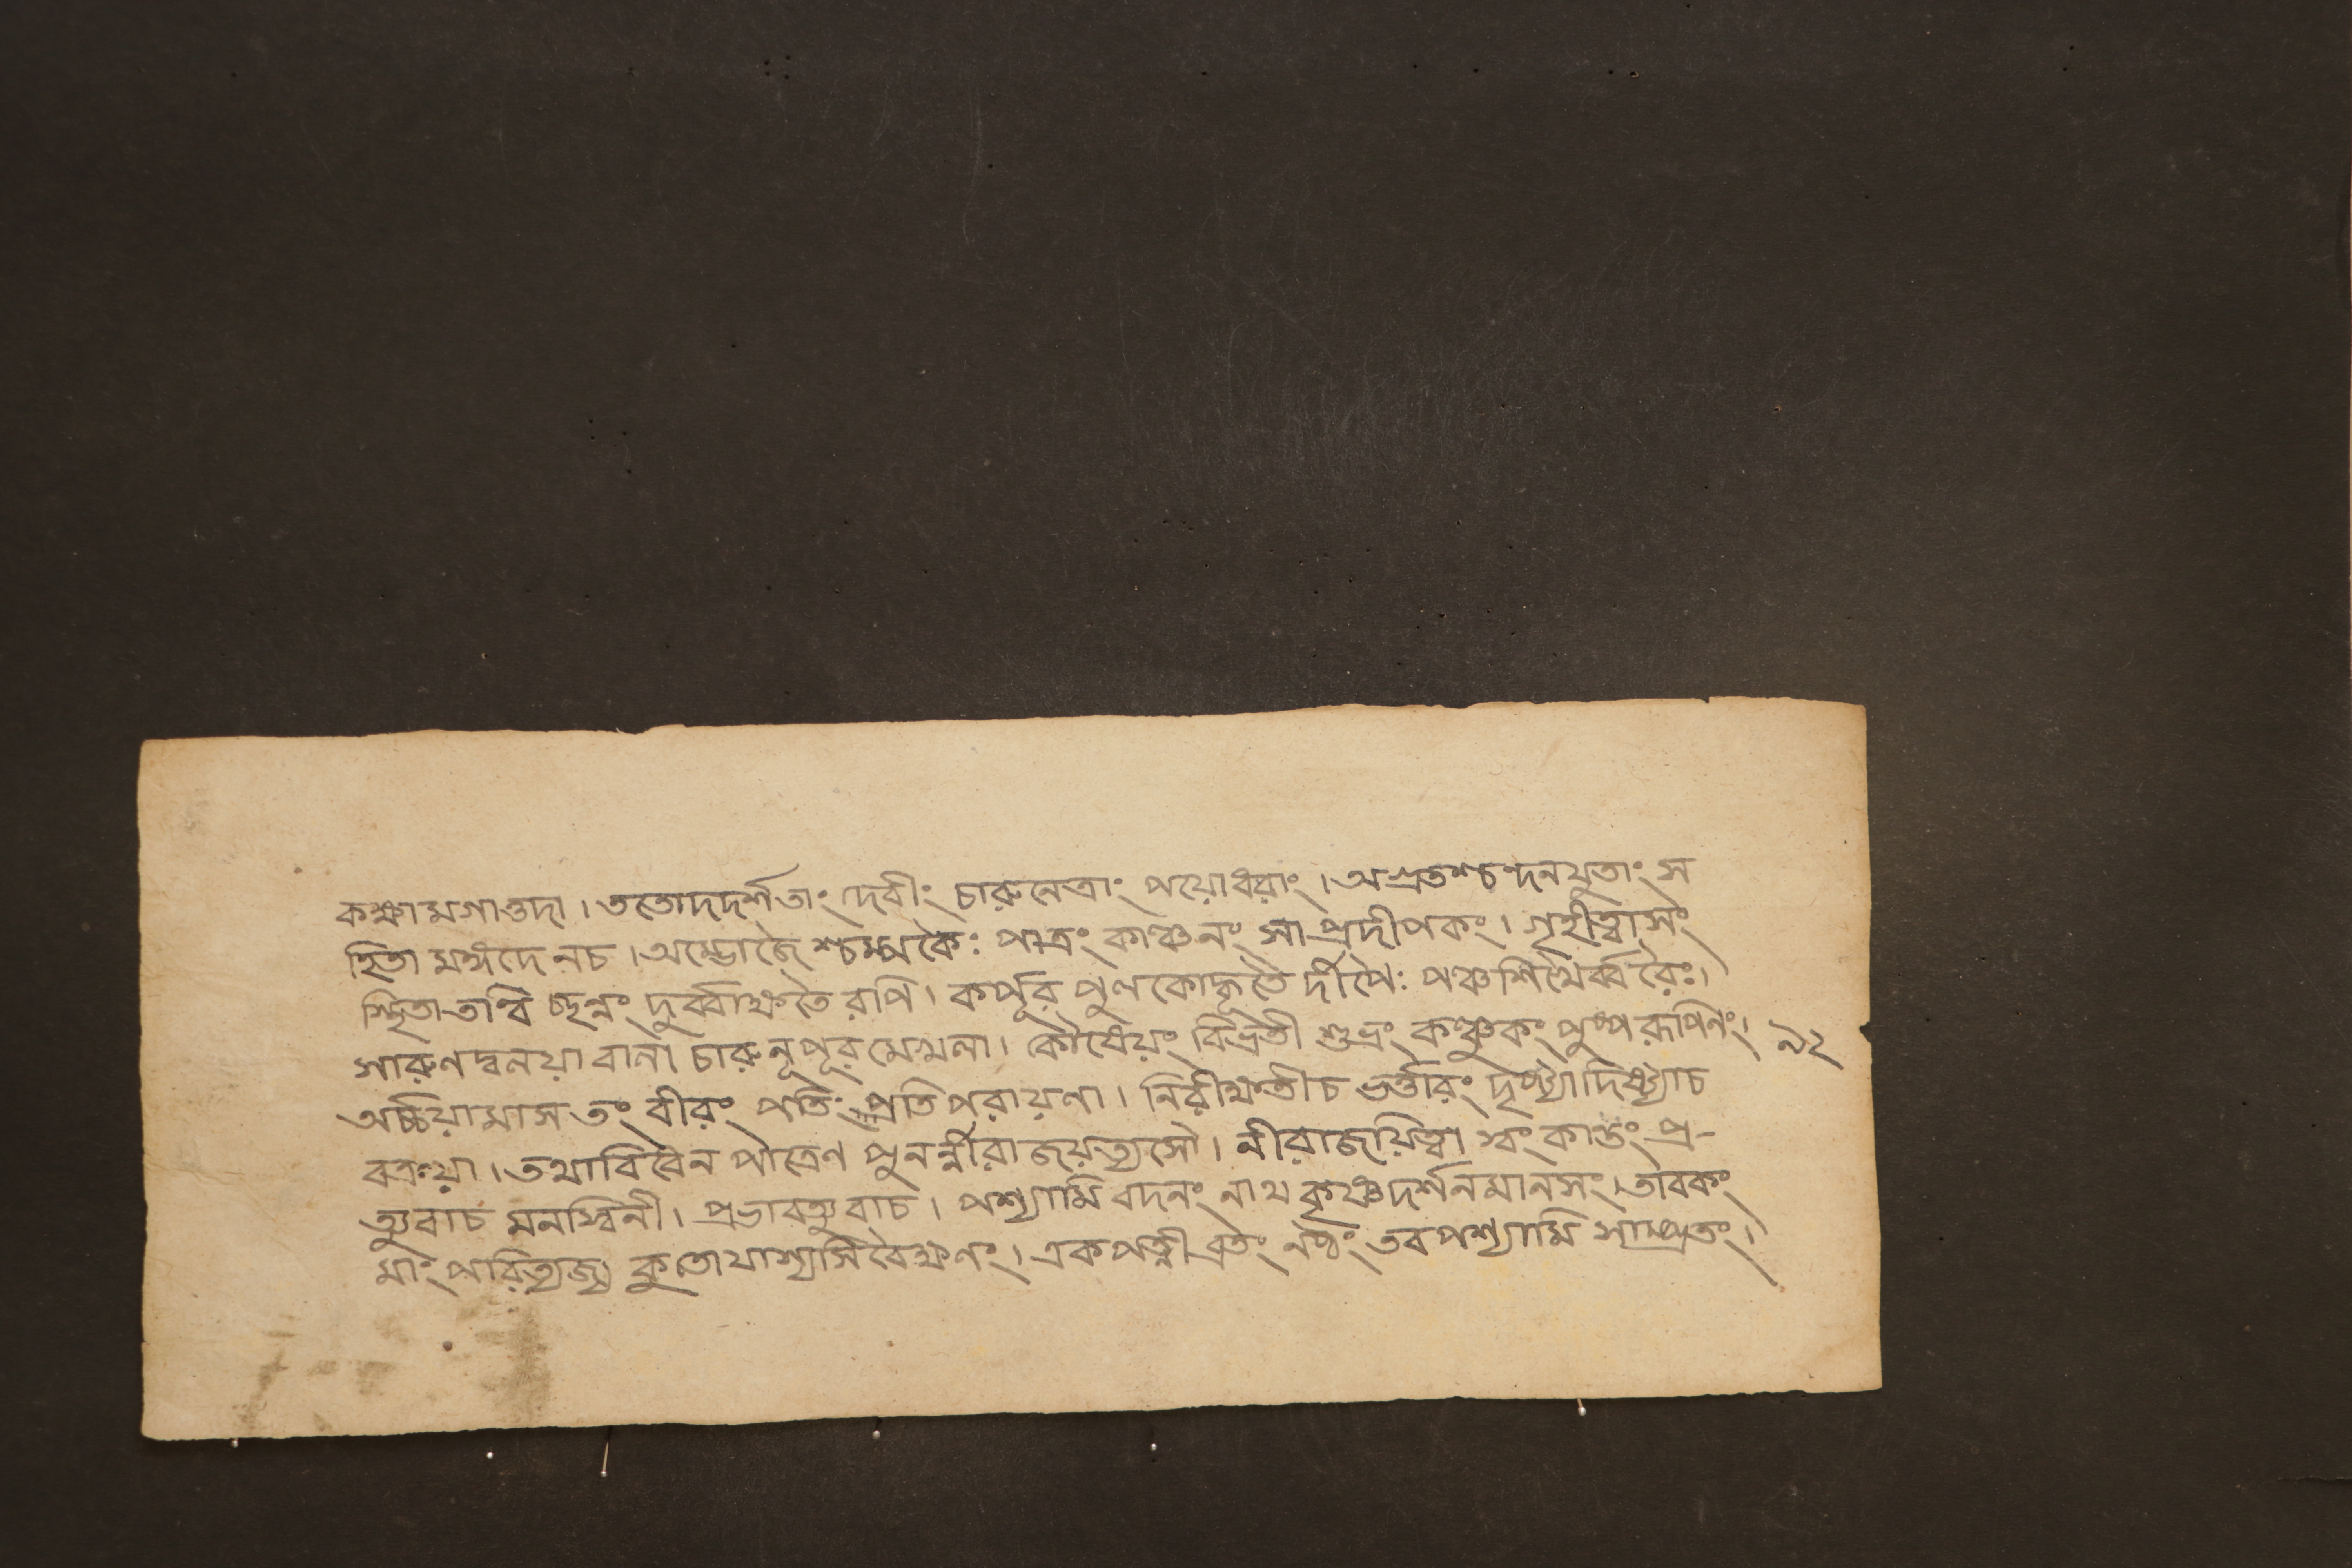 কক্ষামগাত্তদা। ততোদদর্শতাং দেবীং চারুনেত্রাং পয়োধরাং। অগ্রতশ্চন্দনযুতাং স
হিতা মঙ্গদেনচ। অম্ভোজৈশ্চম্পকৈঃ পাত্রং কাঞ্চনং সাপ্রদীপকং। গৃহীত্বাসং
স্থিতা তাম্বি চ্ছন্নং দুর্ব্বাক্ষতৈ রপি। কর্পূর পুলকোদ্ভূতৈ র্দীপৈঃ পঞ্চশিখৈর্ব্বরৈঃ।
সারুণদ্বনয়া বালা চারুনূপূর মেখলা। কৌষেয়ং বিভ্রতী শুভ্রং কঞ্চুকং পুষ্পরূপিনং। ৯২
অর্চ্চয়ামাস তং বীরং পতিং প্রতিপরায়ণা। নিরীক্ষন্তীচ ভর্ত্তারং দৃষ্ট্যাদিষ্ট্যাচ
বক্রয়া। তথাবিধেন পাত্রেণ পুনর্ন্নীরাজয়ত্যসৌ। নীরাজয়িত্বা স্বং কান্তং প্র-
ত্যুবাচ মনস্বিনী। প্রভাবত্যুবাচ। পশ্যামি বদনং নাথ কৃষ্ণদর্শনমানসং। তাবকং
মাং পরিত্যজ্য কুতোযাশ্যসিবৈক্ষণং। একপত্নীব্রতং নষ্ঠং তবপশ্যামি সাম্প্রতং।